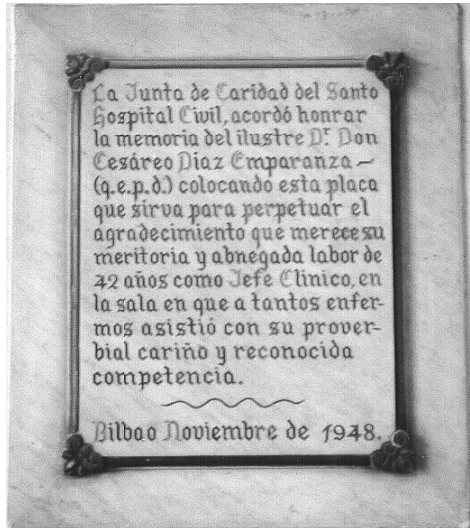 La Junta de Caridad del Santo
Hospital Civil, acordó honrar
la memoria del ilustre Dr. Don
Cesáreo Diaz Emparanza ~
(q.e.p.d.) colocando esta placa
que sirva para perpetuar el
agradecimiento que merece su
meritoria y abnegada labor de
42 años como Jefe Clinico, en
la sala en que a tantos enfer-
mos asistió con su prover-
bial cariño y reconocida
competencia.
Bilbao Noviembre de 1948.